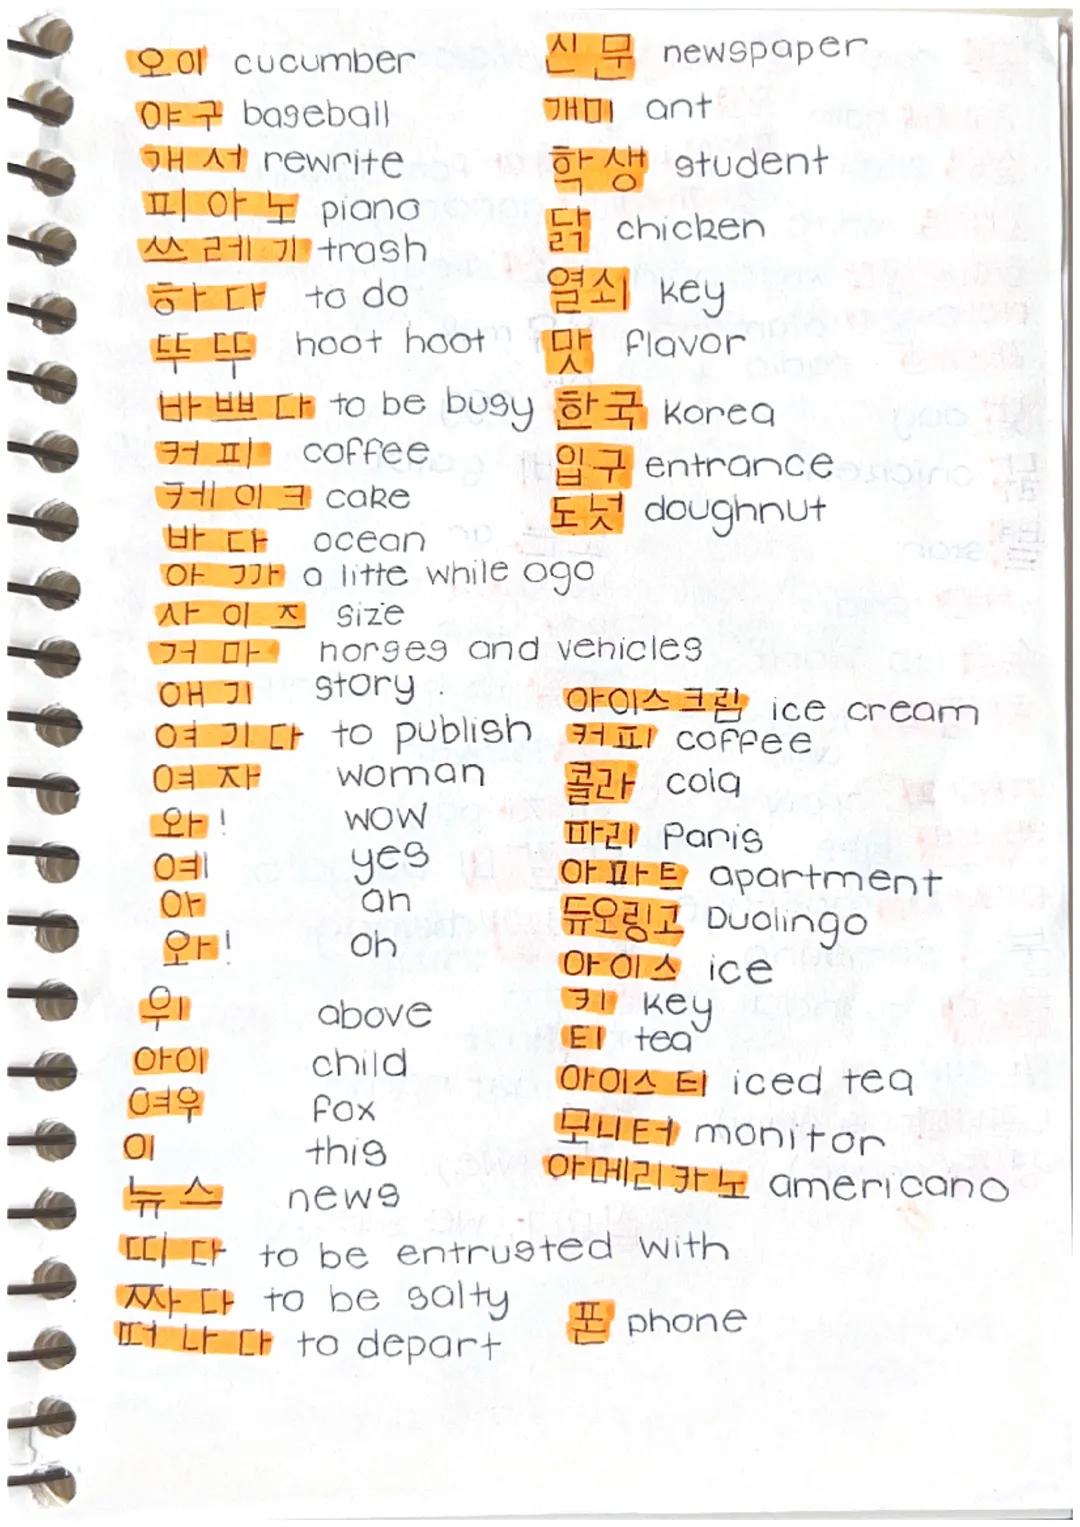 오이 cucumber
야구 baseball
개서 rewrite
피아노 piano
쓰레기 trash
하다 to do
뚜뚜 hoot hoot
바쁘다 to be busy
커피 coffee
케이크 cake
바다 ocean
아까 a litte while ago
사이즈 size
거마 horses and vehicles
얘기 story
여기다 to publish
여자 woman
와! wow
예 yes
아 ah
와! oh
위 above
아이 child
여우 fox
이 this
뉴스 news
띠다 to be entrusted with
짜다 to be salty
떠나다 to depart
신문 newspaper
개미 ant
학생 student
닭 chicken
열쇠 key
맛 flavor
한국 Korea
입구 entrance
도넛 doughnut
아이스크림 ice cream
커피 coffee
콜라 cola
파리 Paris
아파트 apartment
듀오링고 Duolingo
아이스 ice
키 key
티 tea
아이스 티 iced tea
모니터 monitor
아메리카노 americano
폰 phone